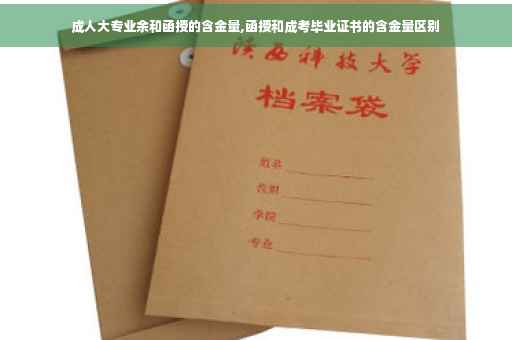 成人大专业余和函授的含金量,函授和成考毕业证书的含金量区别
陕西科技大学
档案袋
姓名
学院
专业